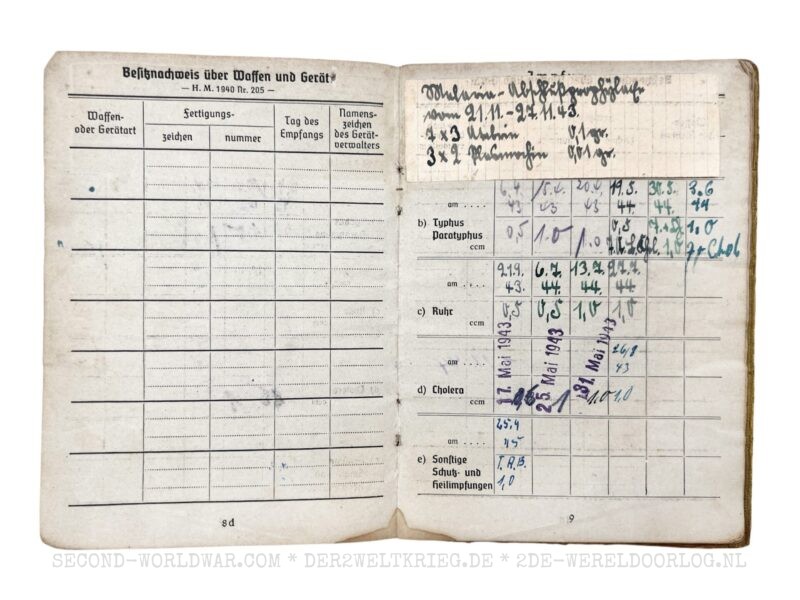 Besitznachweis über Waffen und Gerät
— H. M. 1940 Nr. 205 —
Waffen- oder Gerätart
Fertigungs-
zeichen
nummer
Tag des Empfangs
Namenszeichen des Gerätverwalters
8d
Malaria-
vom 21.11. – 27.11.43.
7 x 3 Atebrin 0,1 gr.
3 x 2 Plasmochin 0,01 gr.
6.4. 15.4. 20.4. 19.5. 30.5. 3.6
am . . . . 43 43 43 44. 44. 44
b) Typhus 0,5 1.0 1.0 0,5 1,0
Paratyphus
ccm 1,0 Chol
21.9. 6.7. 13.7. 27.7.
am . . . . 43. 44. 44. 44
c) Ruhr 0,5 0,5 1,0 1,0
ccm
17. Mai 1943 25. Mai 1943 31. Mai 1943
am . . . . 43
d) Cholera
ccm 1,0 1,0
25.4
am . . . . 45
e) Sonstige T.A.B.
Schutz- und 1,0
Heilimpfungen
9
SECOND-WORLDWAR.COM * DER2WELTKRIEG.DE * 2DE-WERELDOORLOG.NL